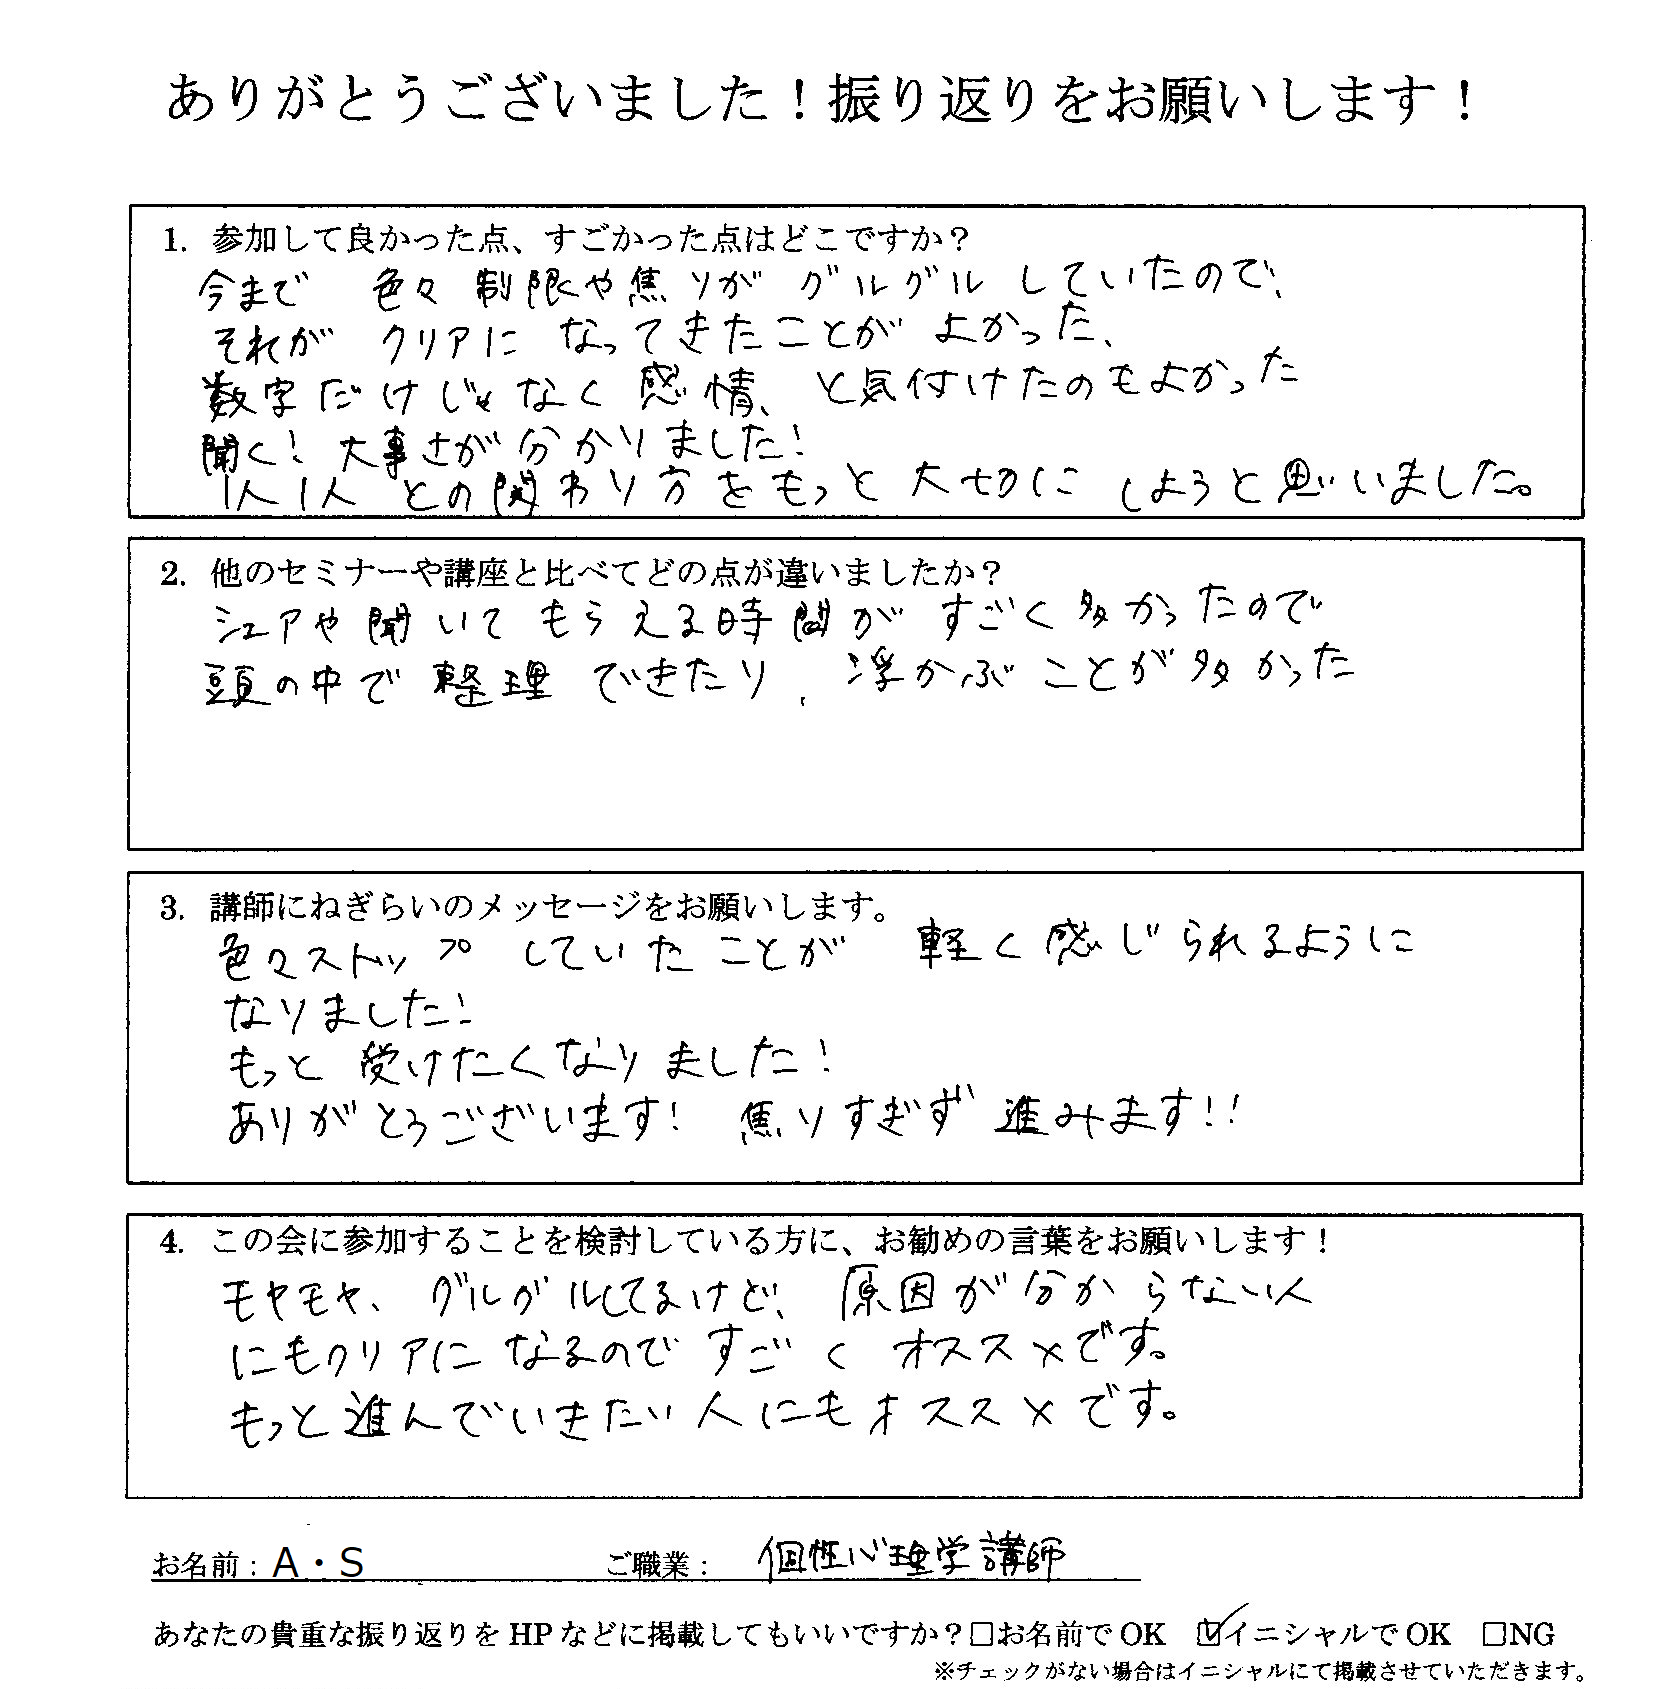 ありがとうございました！振り返りをお願いします！
1. 参加して良かった点、すごかった点はどこですか？
今まで 色々 制限や焦りが グルグル していたので、
それが クリアに なってきたことが よかった、
数字だけじゃなく 感情、と気付けたのもよかった
聞く！ 大事さが分かりました！
1人1人 との関わり方をもっと 大切に しようと思いました。
2. 他のセミナーや講座と比べてどの点が違いましたか？
シェアや聞いて もらえる時間が すごく多かったので
頭の中で 整理 できたり、浮かぶことが多かった
3. 講師にねぎらいのメッセージをお願いします。
色々ストップ していたことが 軽く感じられるように
なりました！
もっと 受けたくなりました！
ありがとうございます！ 焦りすぎず 進みます！！
4. この会に参加することを検討している方に、お勧めの言葉をお願いします！
モヤモヤ、グルグルしてるけど、原因が分からない人
にもクリアに なるので すごく オススメです。
もっと進んでいきたい人にもオススメです。
お名前：A・S ご職業： 個性心理学講師
あなたの貴重な振り返りを HP などに掲載してもいいですか？□お名前で OK ☑イニシャルで OK □NG
※チェックがない場合はイニシャルにて掲載させていただきます。